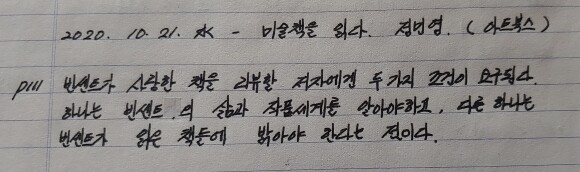 2020. 10. 21. 水 - 미술책을 읽다. 정민영. (아트북스)
P111 빈센트가 사랑한 책을 리뷰할 저자에겐 두가지 조건이 요구된다.
하나는 빈센트의 삶과 작품세계를 알아야하고, 다른 하나는
빈센트가 읽은 책들에 밝아야 한다는 점이다.